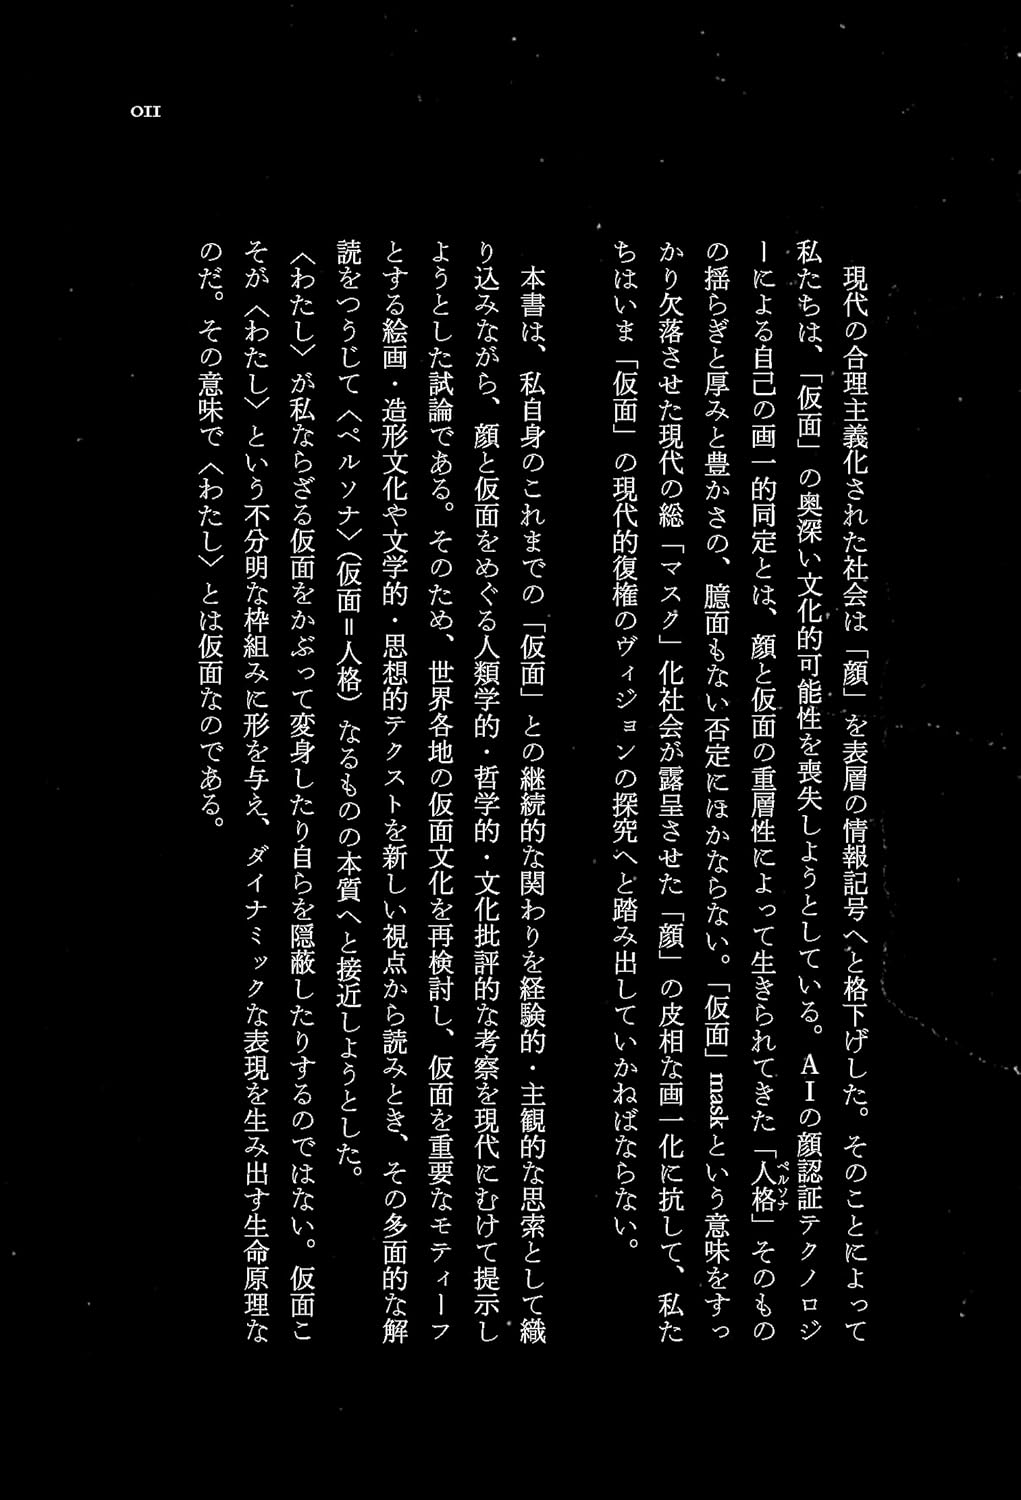 011
現代の合理主義化された社会は「顔」を表層の情報記号へと格下げした。そのことによって
私たちは、「仮面」の奥深い文化的可能性を喪失しようとしている。AIの顔認証テクノロジ
ーによる自己の画一的同定とは、顔と仮面の重層性によって生きられてきた「人格」そのもの
ペルソナ
の揺らぎと厚みと豊かさの、臆面もない否定にほかならない。「仮面」maskという意味をすっ
かり欠落させた現代の総「マスク」化社会が露呈させた「顔」の皮相な画一化に抗して、私た
ちはいま「仮面」の現代的復権のヴィジョンの探究へと踏み出していかねばならない。
本書は、私自身のこれまでの「仮面」との継続的な関わりを経験的・主観的な思索として織
り込みながら、顔と仮面をめぐる人類学的・哲学的・文化批評的な考察を現代にむけて提示し
ようとした試論である。そのため、世界各地の仮面文化を再検討し、仮面を重要なモティーフ
とする絵画・造形文化や文学的・思想的テクストを新しい視点から読みとき、その多面的な解
読をつうじて〈ペルソナ〉（仮面＝人格）なるものの本質へと接近しようとした。
〈わたし〉が私ならざる仮面をかぶって変身したり自らを隠蔽したりするのではない。仮面こ
そが〈わたし〉という不分明な枠組みに形を与え、ダイナミックな表現を生み出す生命原理な
のだ。その意味で〈わたし〉とは仮面なのである。